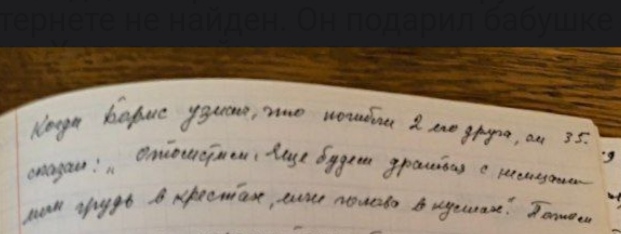 тернете не найден. Он подарил бабушке
Когда Борис узнал, что погибли 2 его друга, он 35.
сказал: „ Отомстим. Еще будем драться с немцами
или грудь в крестах, или голова в кустах". Потом